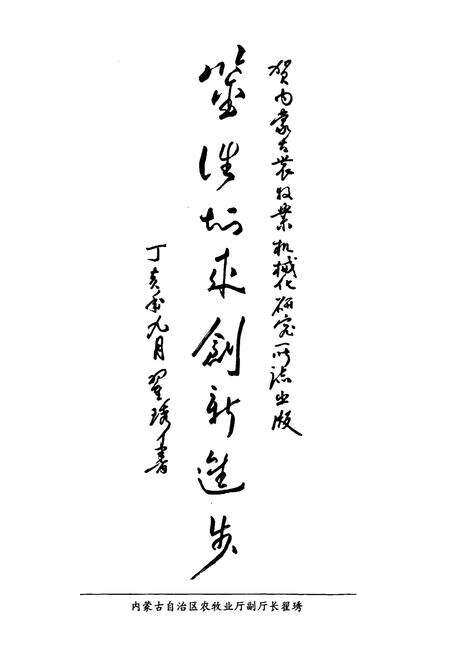 贺内蒙古农牧业机械化研究所志出版
鉴往知来创新进步
丁亥年九月翟琇书
内蒙古自治区农牧业厅副厅长翟琇